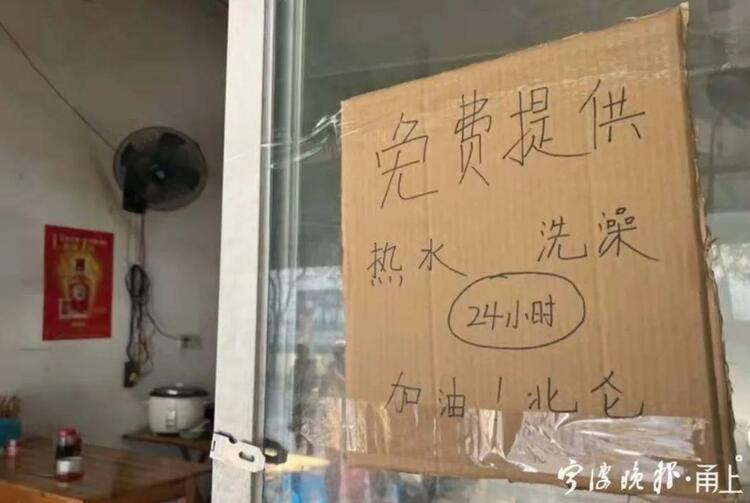 免费提供
热水 洗澡
24小时
加油！北仑
宁波晚报·甬上